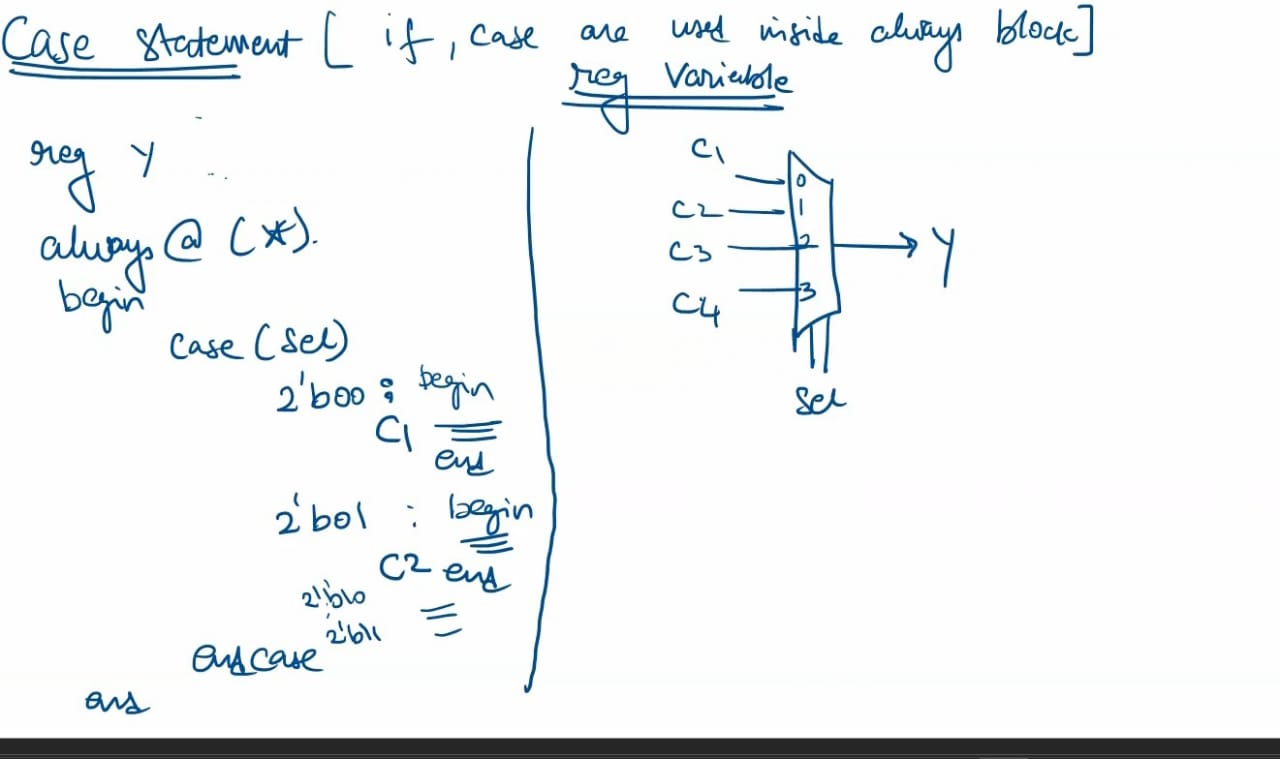 Case statement [ if, case are used inside always block]
reg variable
reg Y
always @ (*).
begin
case (sel)
2'b00 : begin
C1
end
2'b01 : begin
C2 end
2'b10
2'b11
endcase
end
C1
C2
C3
C4
0
1
2
3
Y
sel